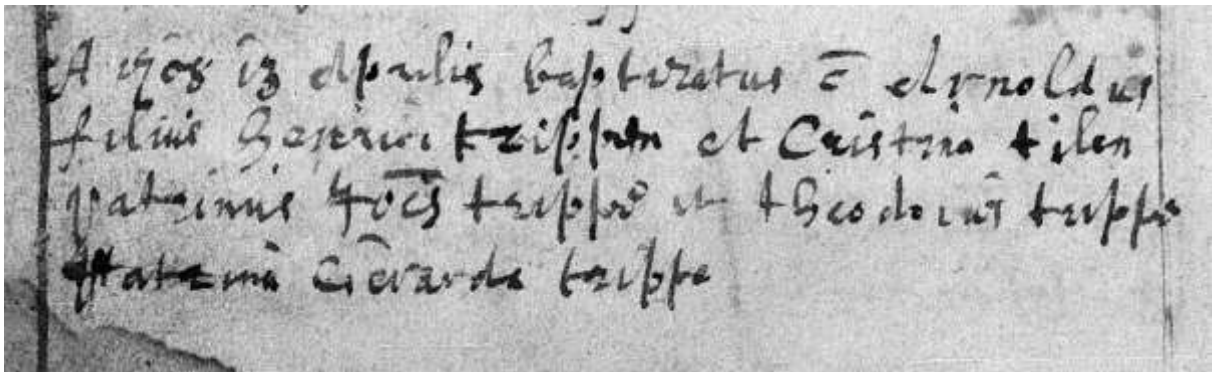 A 1708 13 Aprilis baptizatus ē Arnoldus
filius Henrici trippen et Cristina tilen
patrinus Joēs trippe et theodorus trippe
Matrina Gerarda trippe